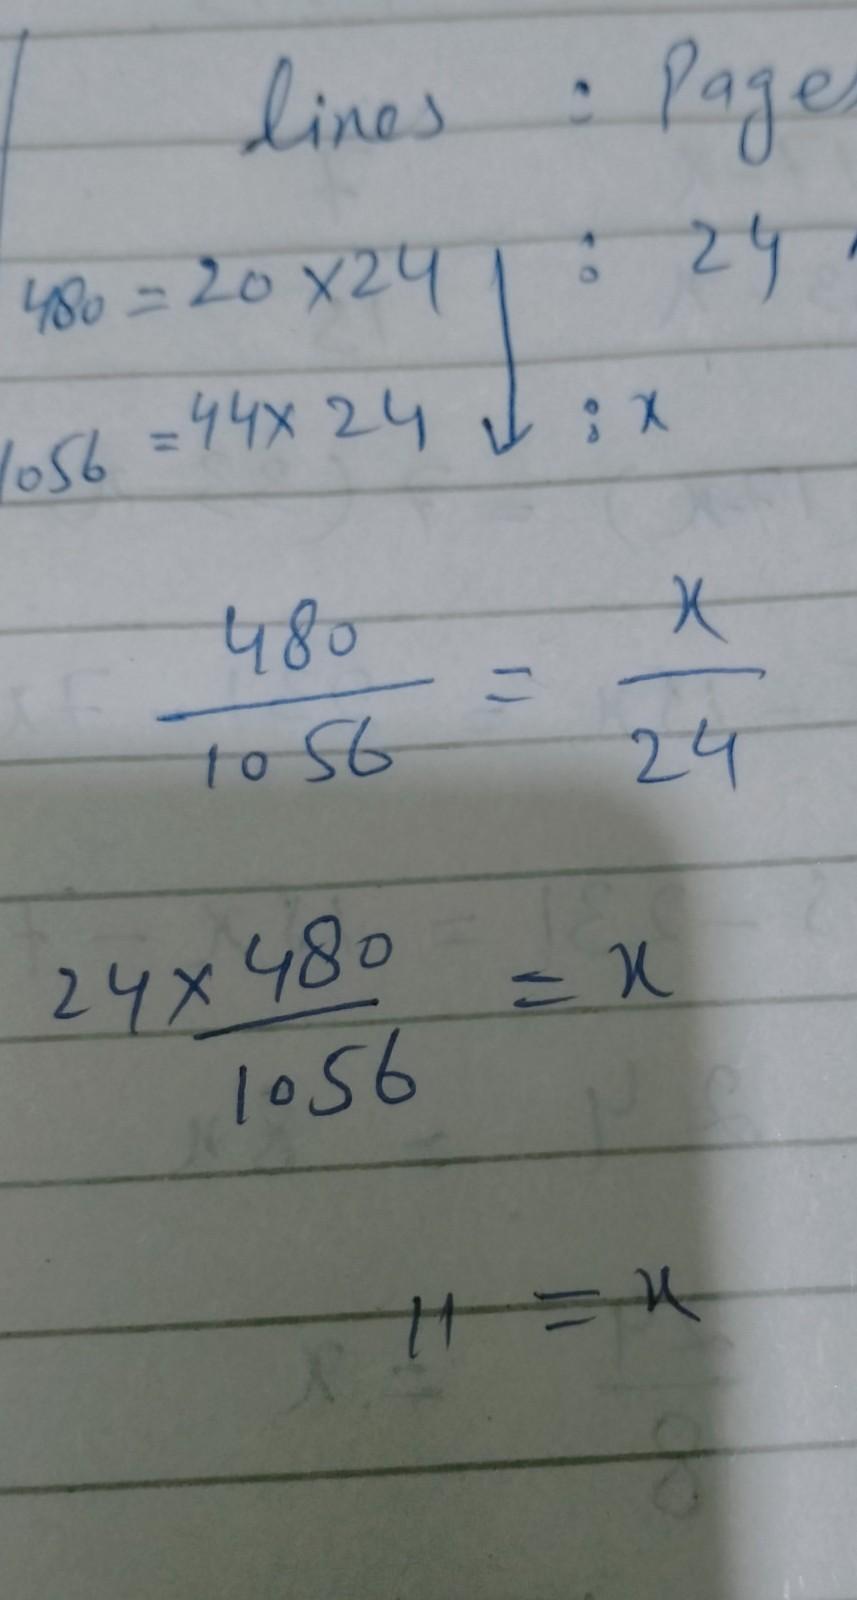 lines : Pages
480 = 20 x 24 : 24
1056 = 44 x 24 : x
480/1056 = x/24
24 x 480/1056 = x
11 = x